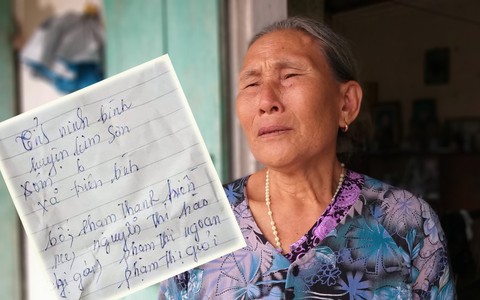 Tỉnh ninh bình
huyện kim Sơn
xóm 6
xã hiến bình
bố: phạm thanh hiền
mẹ: nguyễn thị hào
chị gái: phạm thị ngoan
phạm thị quởi